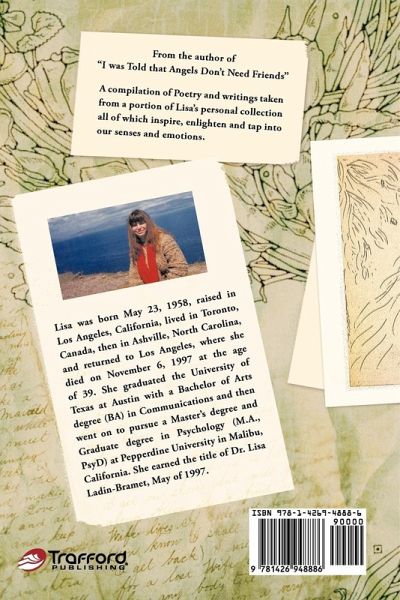 From the author of
“I was Told that Angels Don’t Need Friends”
A compilation of Poetry and writings taken
from a portion of Lisa’s personal collection
all of which inspire, enlighten and tap into
our senses and emotions.
Lisa was born May 23, 1958, raised in
Los Angeles, California, lived in Toronto,
Canada, then in Ashville, North Carolina,
and returned to Los Angeles, where she
died on November 6, 1997 at the age
of 39. She graduated the University of
Texas at Austin with a Bachelor of Arts
degree (BA) in Communications and then
went on to pursue a Master’s degree and
Graduate degree in Psychology (M.A.,
PsyD) at Pepperdine University in Malibu,
California. She earned the title of Dr. Lisa
Ladin-Bramet, May of 1997.
ISBN 978-1-4269-4888-6
90000
9 781426 948886
Trafford
PUBLISHING